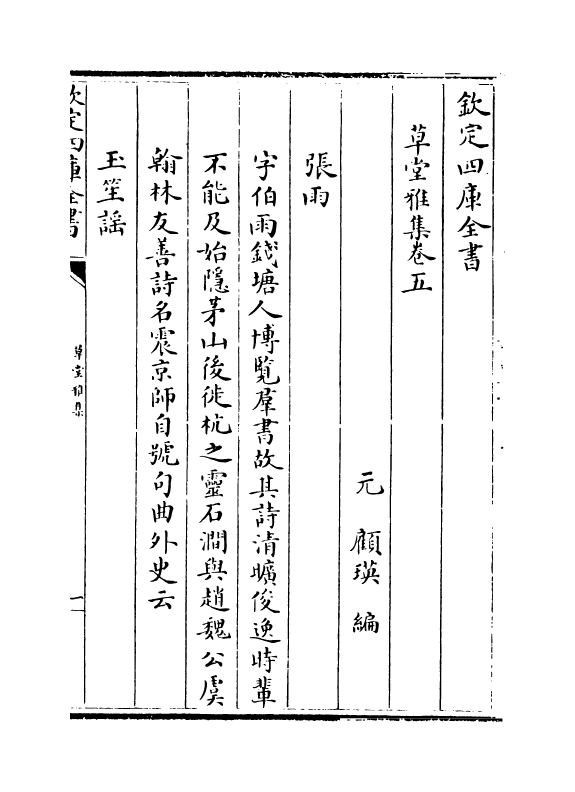 欽定四庫全書
草堂雅集卷五
元 顧瑛 編
張雨
字伯雨錢塘人博覽羣書故其詩清曠俊逸時輩
不能及始隱茅山後徙杭之靈石澗與趙魏公虞
翰林友善詩名震京師自號句曲外史云
玉笙謡
欽定四庫全書
草堂雅集
一